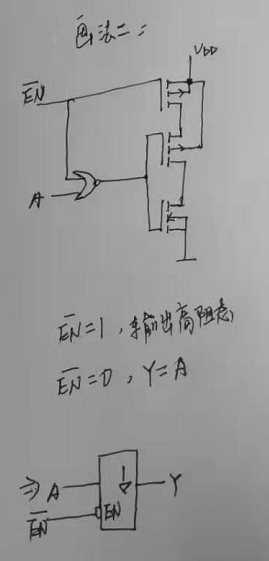 画法二:
VDD
E̅N̅
A
E̅N̅=1,输出高阻态
E̅N̅=0,Y=A
⇒ A
1
Y
E̅N̅
EN